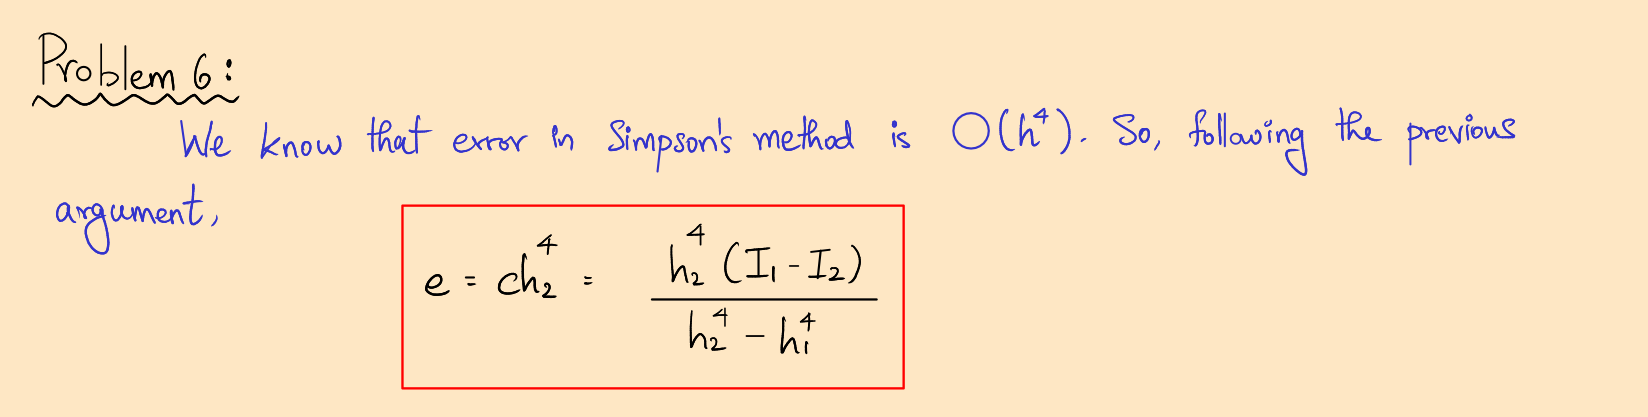 Problem 6:
We know that error in Simpson's method is O(h⁴). So, following the previous
argument,
e = ch₂⁴ = h₂⁴ (I₁ - I₂) / h₂⁴ - h₁⁴